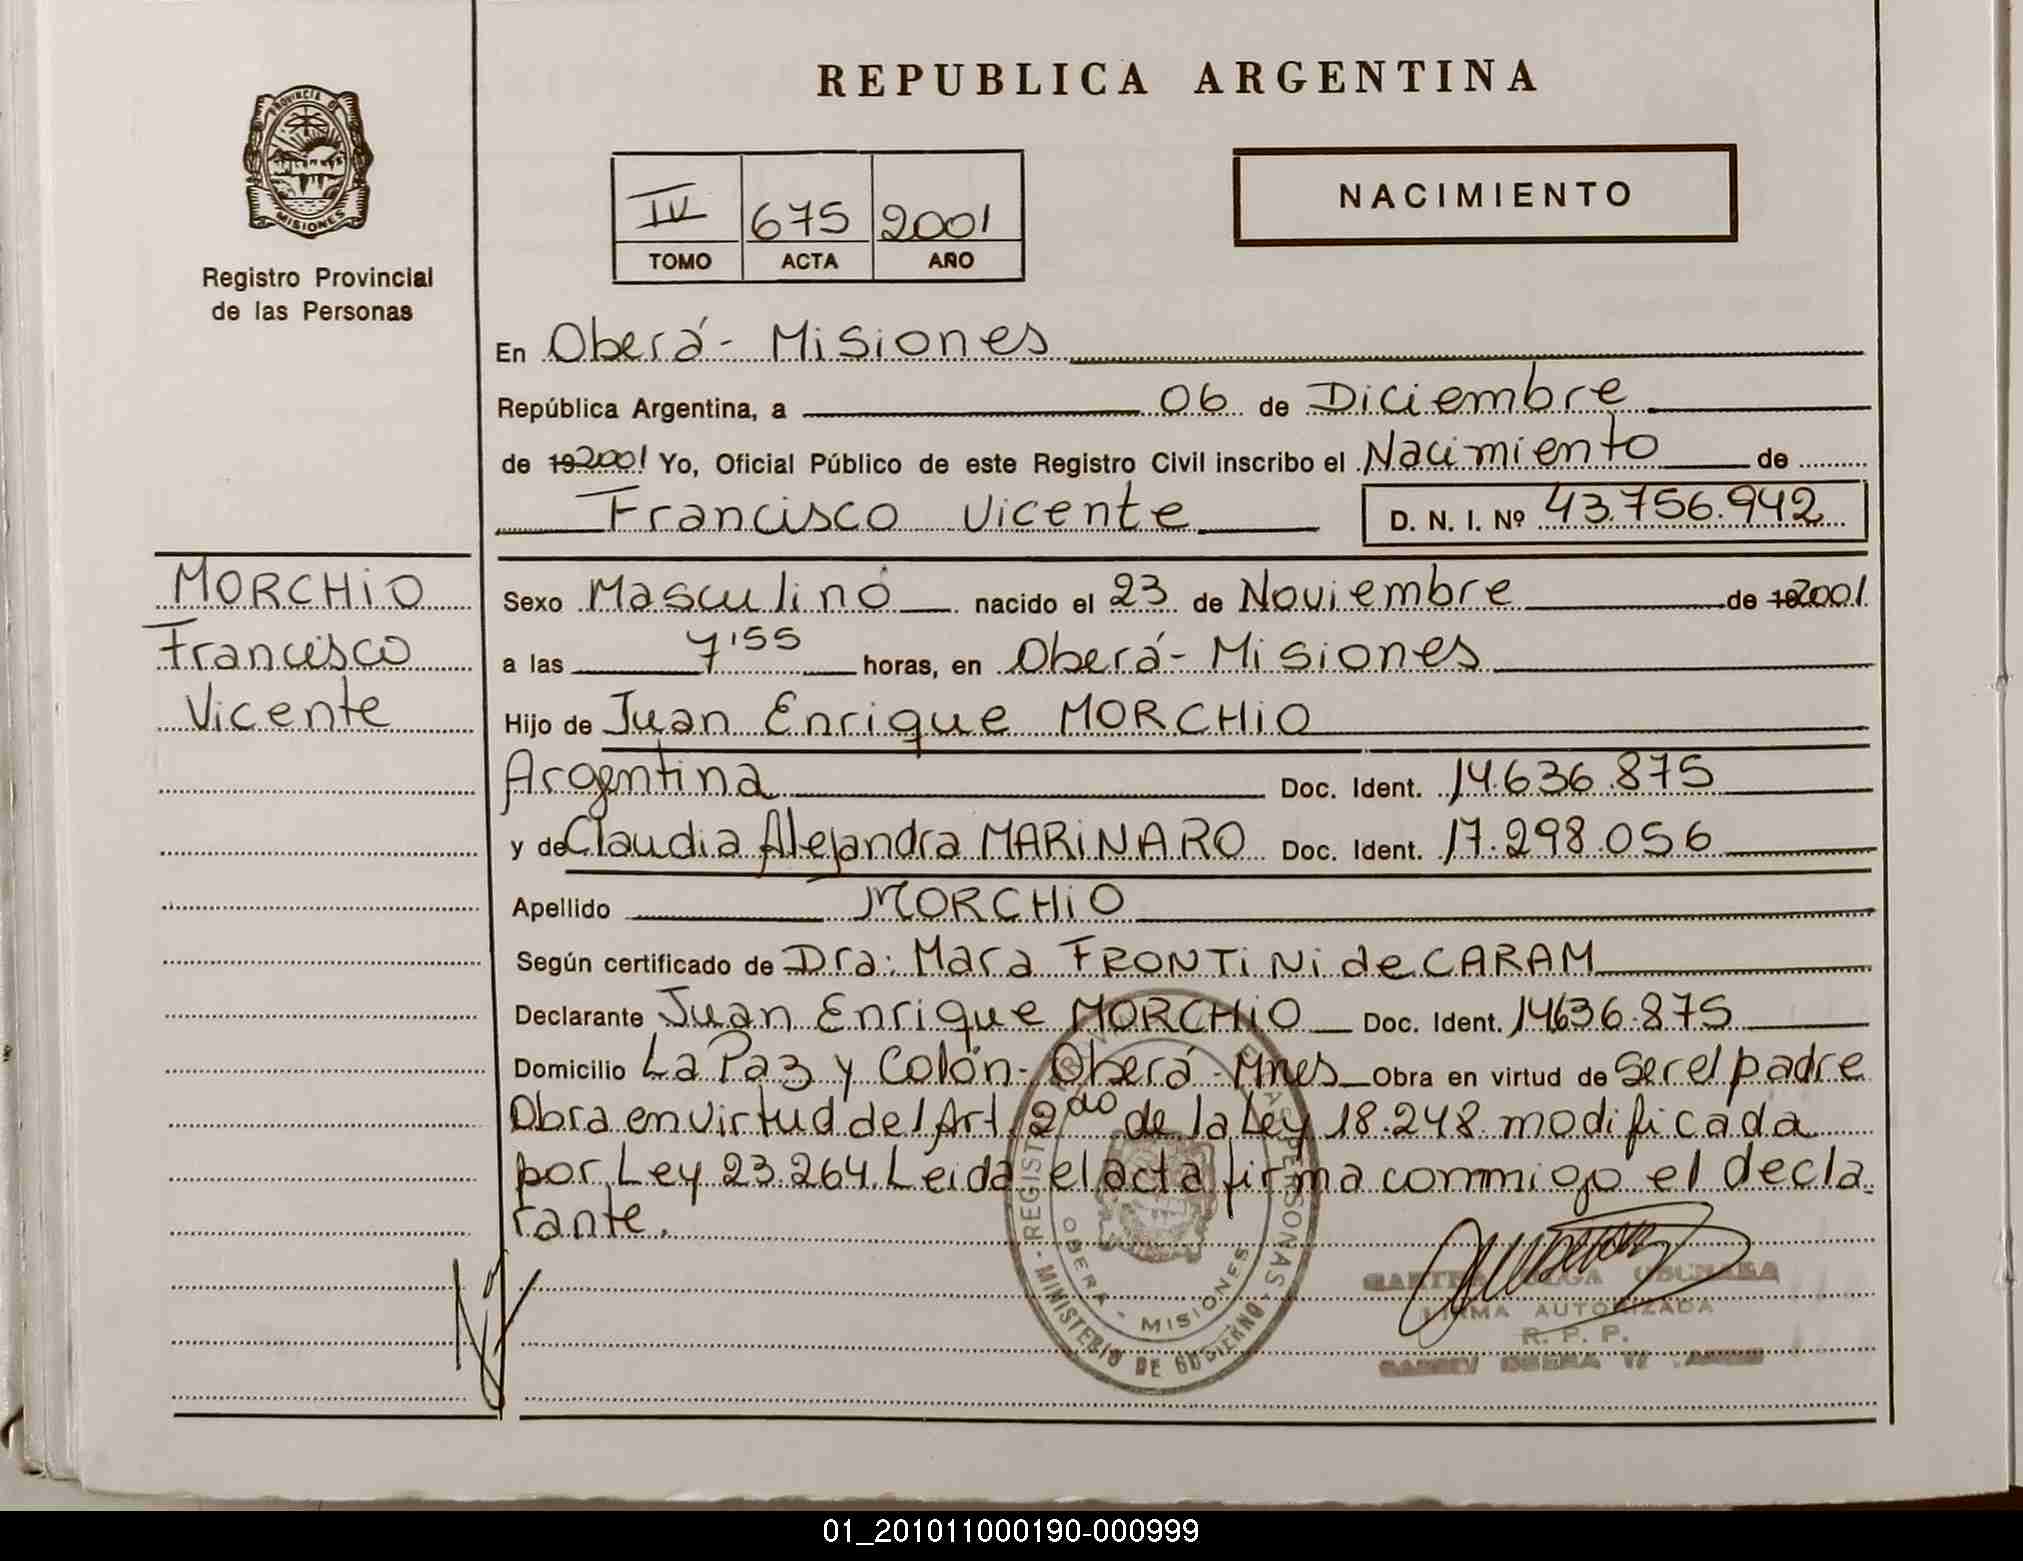 REPUBLICA ARGENTINA
PROVINCIA DE
MISIONES
Registro Provincial
de las Personas
NACIMIENTO
IV 675 2001
TOMO ACTA AÑO
En Oberá - Misiones
República Argentina, a 06 de Diciembre
de 192001 Yo, Oficial Público de este Registro Civil inscribo el Nacimiento de
Francisco Vicente D. N. I. Nº 43.756.942
MORCHiO
Francisco
Vicente
Sexo Masculino nacido el 23 de Noviembre de 192001
a las 7'55 horas, en Oberá - Misiones
Hijo de Juan Enrique MORCHiO
Argentina Doc. Ident. 14.636.875
y de Claudia Alejandra MARiNARO Doc. Ident. 17.298.056
Apellido MORCHiO
Según certificado de Dra: Mara FRONTiNi de CARAM
Declarante Juan Enrique MORCHiO Doc. Ident. 14636.875
Domicilio La Paz y Colón - Oberá - Mnes Obra en virtud de ser el padre
Obra en virtud del Art. 2do de la Ley 18.248 modificada
por Ley 23.264. Leida el acta firma conmigo el decla
rante.
OBERA - MISIONES
MINISTERIO DE GOBIERNO
FIRMA AUTORIZADA
R. P. P.
01_201011000190-000999